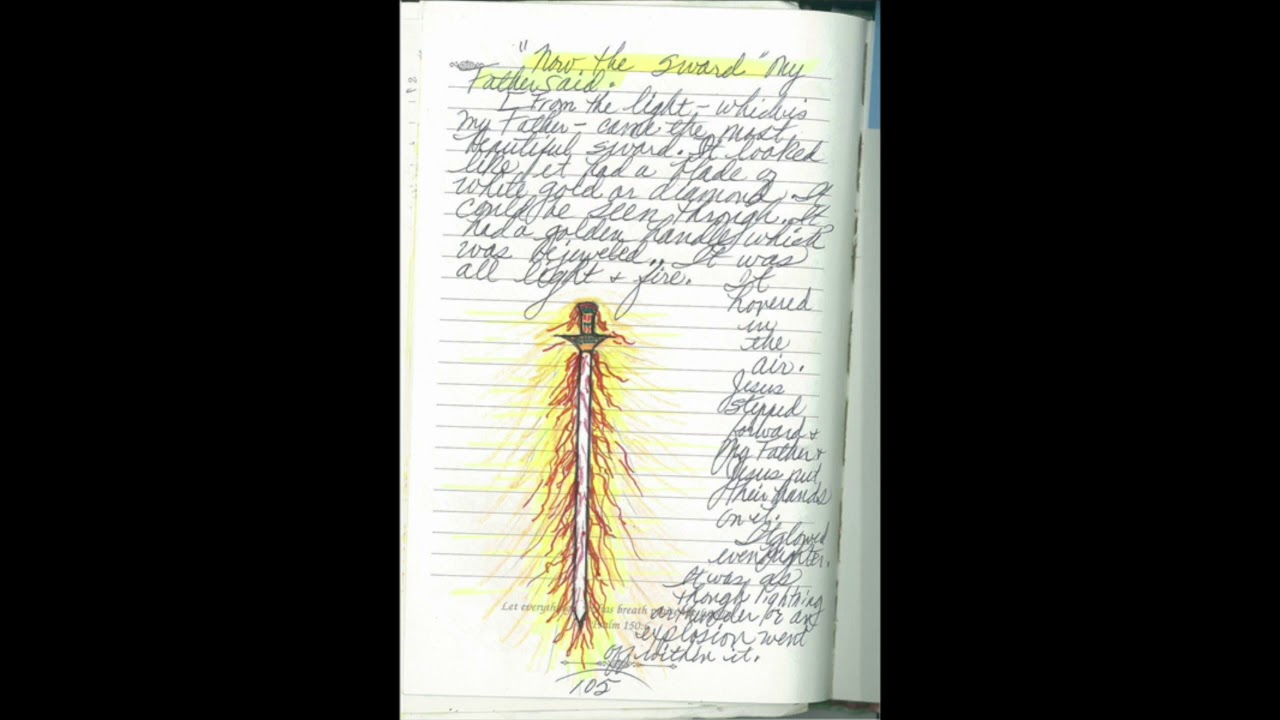 "Now the sword" My
Father said.
I From the light - which is
my Father - came the most
beautiful sword. It looked
like it had a blade of
white gold or diamond. It
could be seen through. It
had a golden handle which
was bejeweled. It was
all light & fire. It
hovered
in
the
air.
Jesus
stepped
forward &
My Father &
Jesus put
their hands
on it.
It glowed
even brighter.
It was as
though lightning
or thunder or an
explosion went
off within it.
Let everything has breath
Psalm 150:6
105